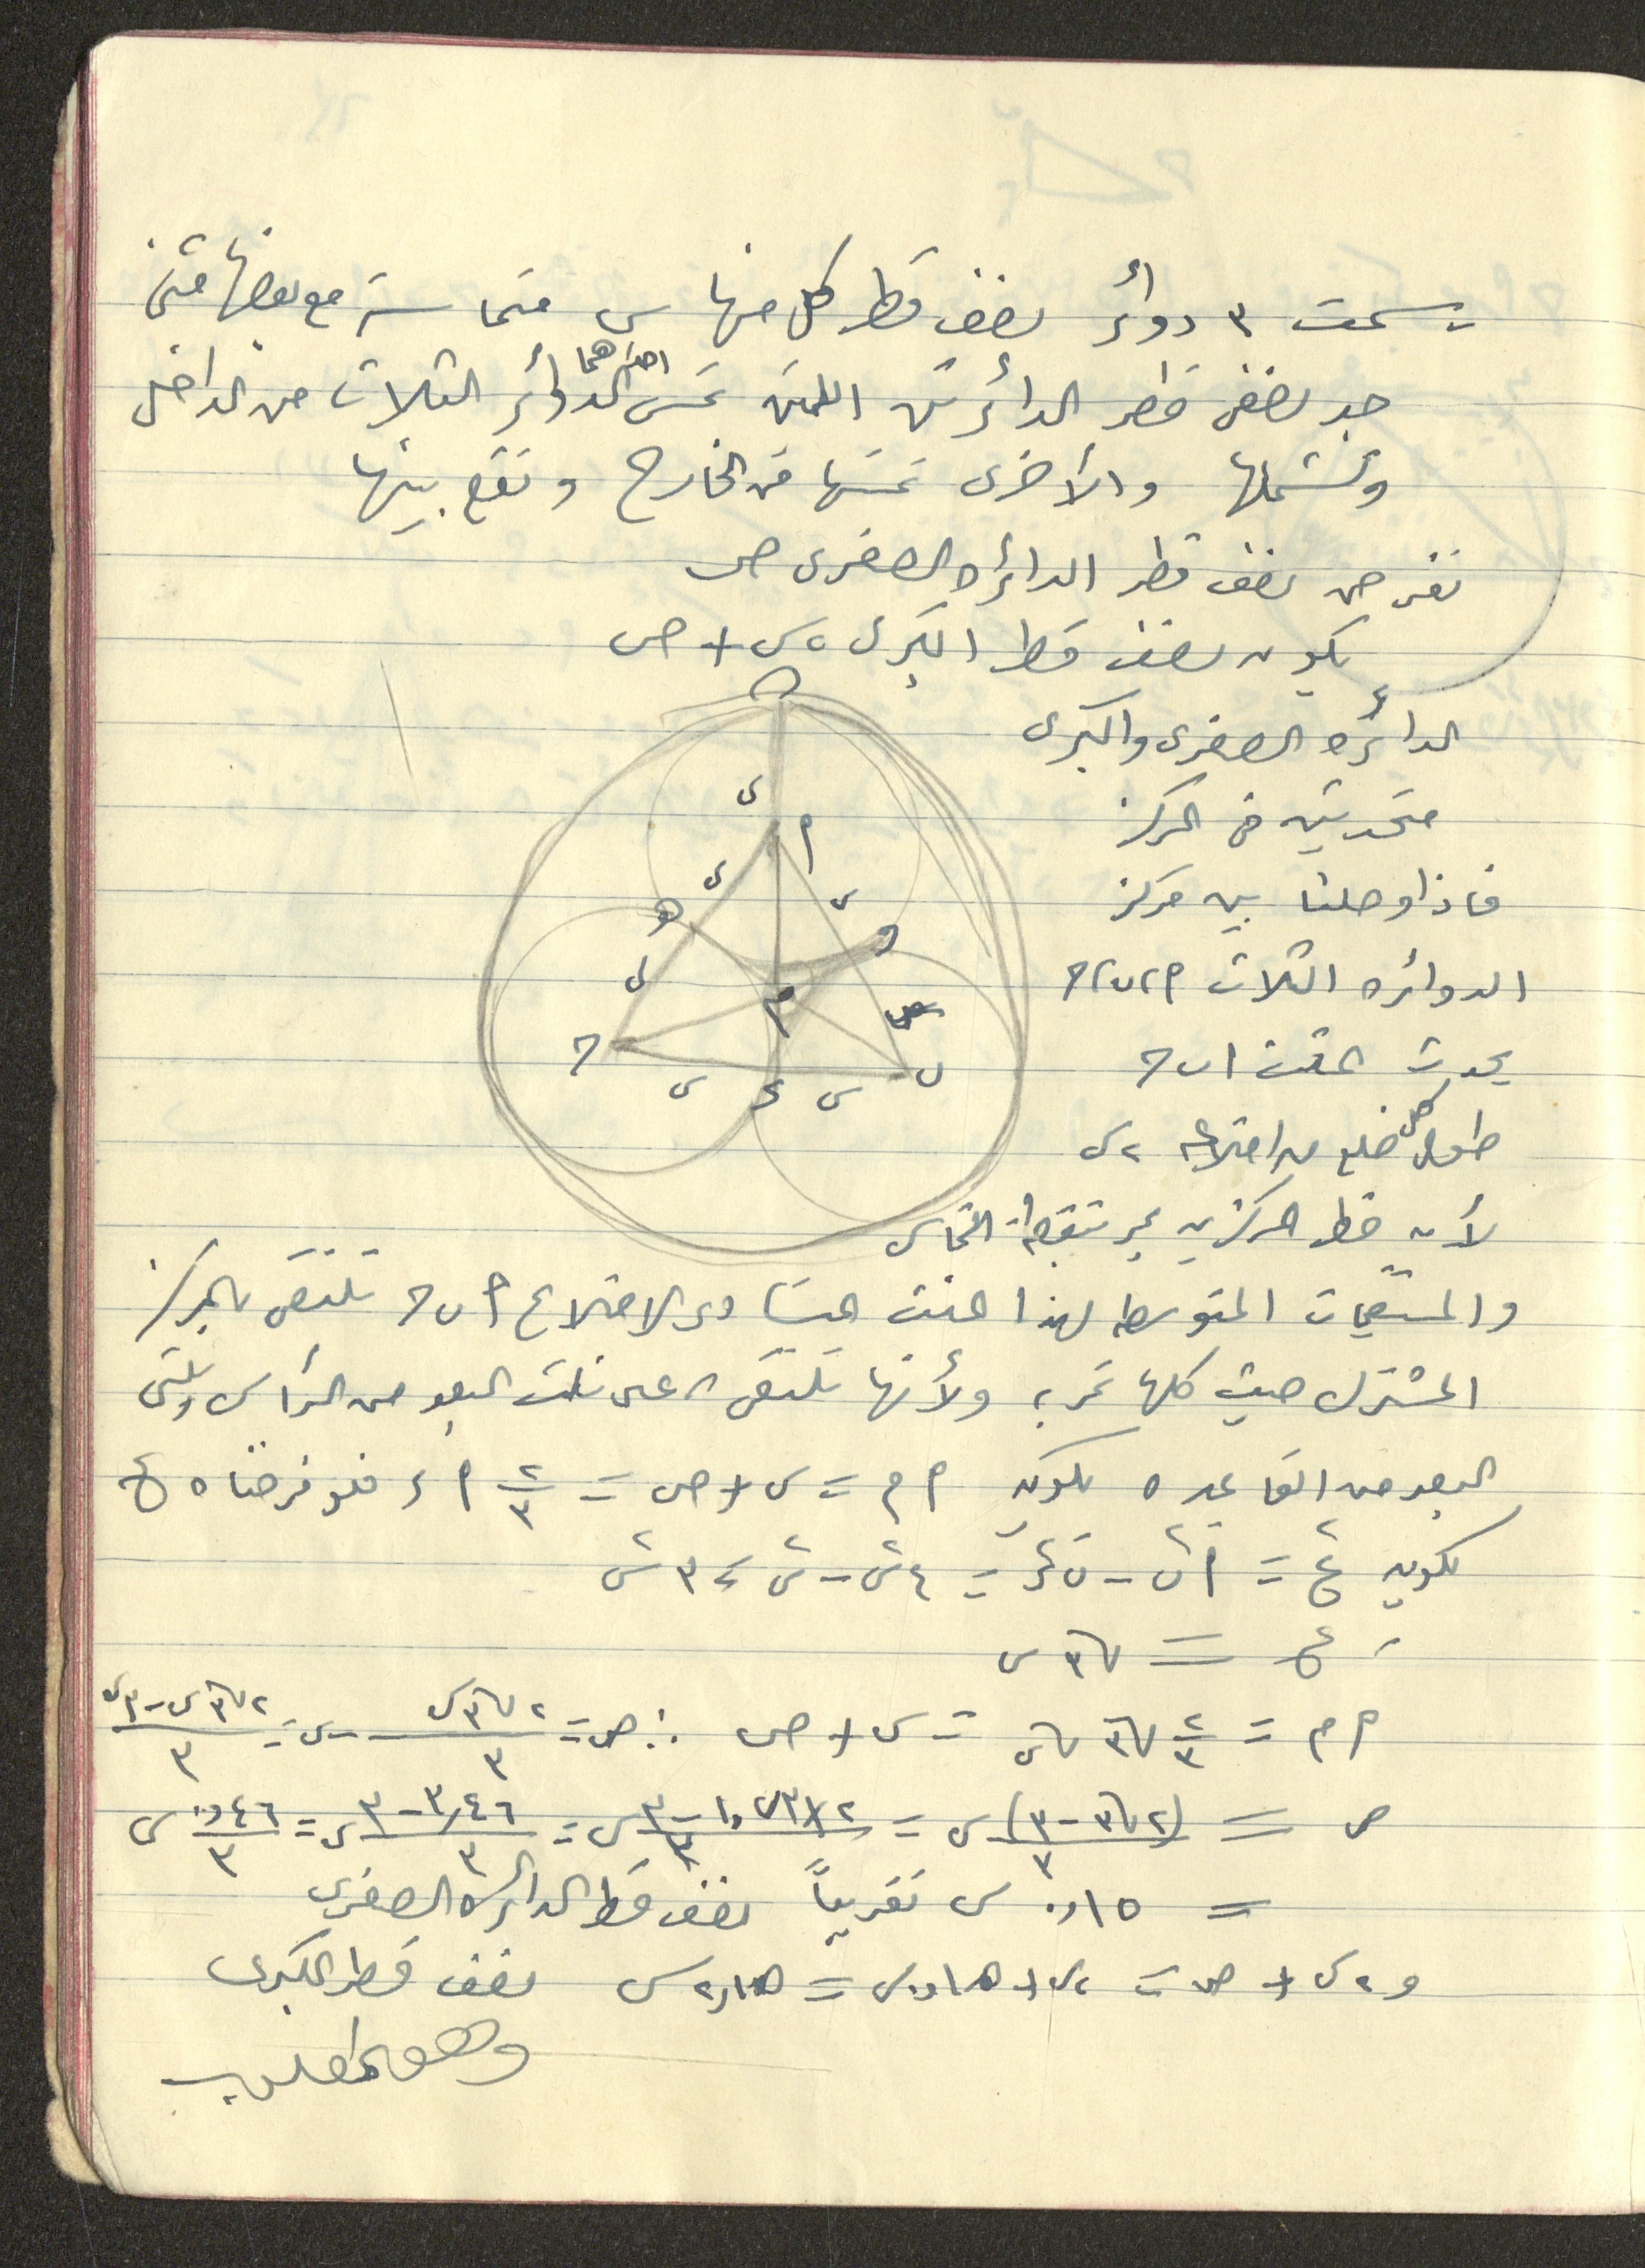 رسمت ٣ دوائر نصف قطر كل منها س متماسة مع بعضها مثنى
جد نصف قطر الدائرتين اللتين تمس احداهما الدوائر الثلاث من الداخل
وتشملها والأخرى تمسها من الخارج وتقع بينها
نفرض نصف قطر الدائرة الصغرى ص
يكون نصف قطر الكبرى ٢س + ص
الدائرة الصغرى والكبرى
متحدتين في المركز
فاذا وصلنا بين مركز
الدوائر الثلاث أ، ب، ح
يحدث المثلث ا ب ح
طول كل ضلع من اضلاعه ٢س
لأن خط المركزين يمر بنقطة التماس
والمستقيمات المتوسطه لهذا المثلث المتساوي الاضلاع أ ب ح تلتقي بالمركز
المشترك حيث كلها تمر به ولأنها تلتقي على ثلث البعد من الرأس وثلثي
البعد من القاعده يكون أ م = س + ص = ٢/٣ أ ء فلو فرضناه ع
يكون ع٢ = أ ب٢ - ب ء٢ = ٤س٢ - س٢ = ٣س٢
ع = √٣ س
أ م = ٢/٣ √٣ س = س + ص ∴ ص = ٢√٣ س/٣ - س = (٢√٣ س - ٣س)/٣
ص = (٢√٣ - ٣)/٣ س = (٢×١,٧٣ - ٣)/٣ س = (٣,٤٦ - ٣)/٣ س = ٠,٤٦/٣ س
= ٠,١٥ س تقريباً نصف قطر الدائرة الصغرى
و ٢س + ص = ٢س + ٠,١٥س = ٢,١٥ س نصف قطر الكبرى
وهو المطلوب